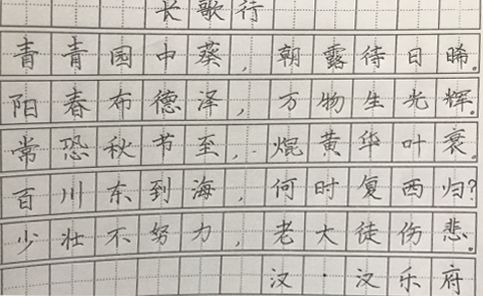 长歌行
青青园中葵，朝露待日晞。
阳春布德泽，万物生光辉。
常恐秋节至，焜黄华叶衰。
百川东到海，何时复西归？
少壮不努力，老大徒伤悲。
汉·汉乐府